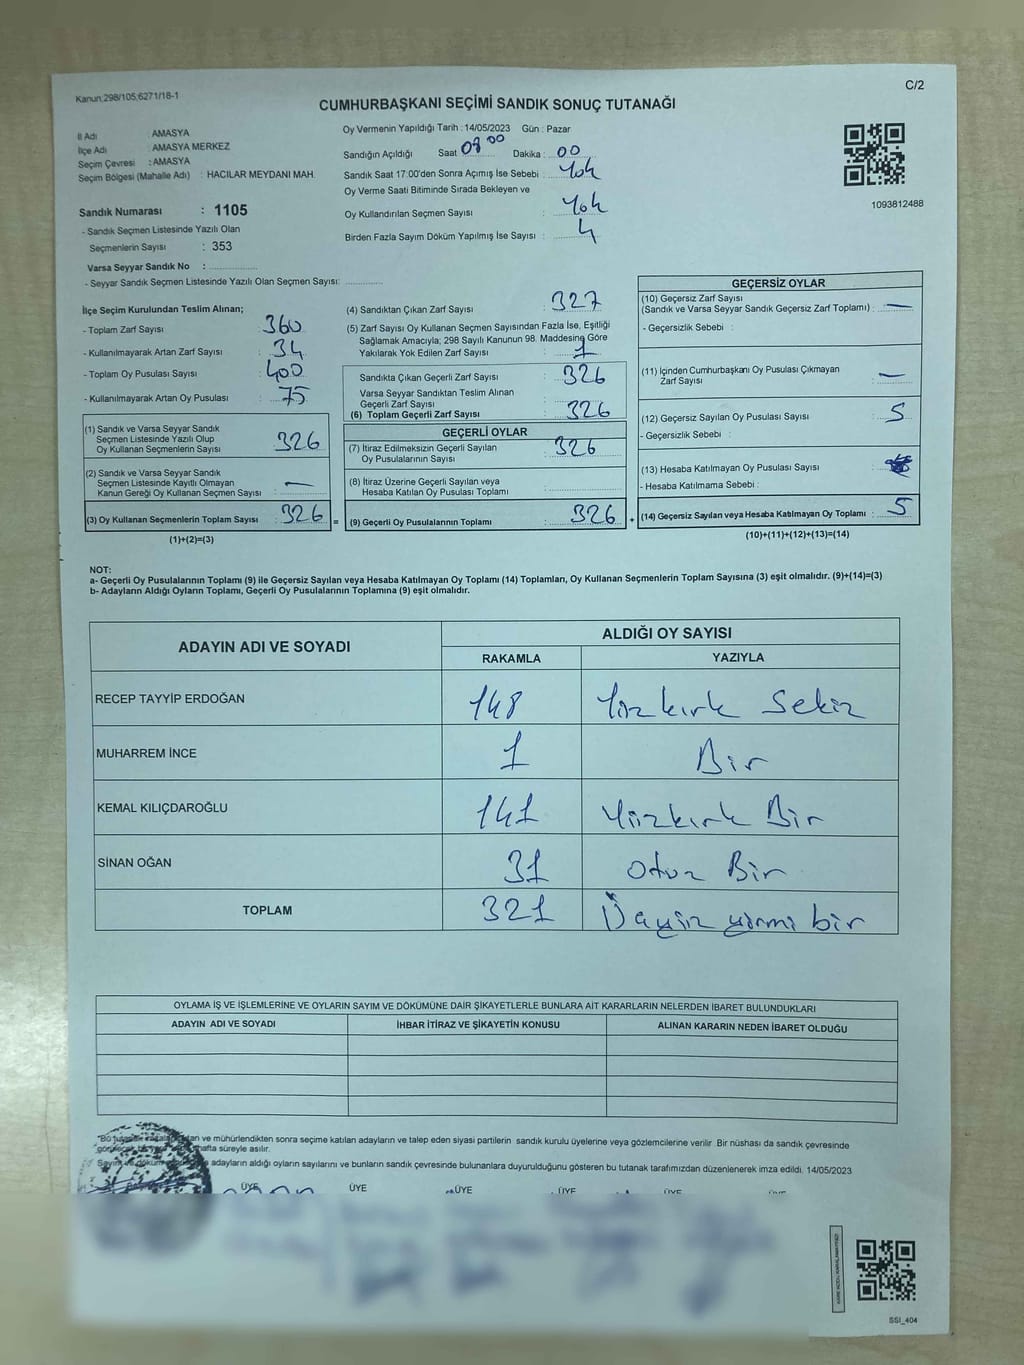 Kanun:298/105;6271/18-1
C/2
CUMHURBAŞKANI SEÇİMİ SANDIK SONUÇ TUTANAĞI
İl Adı : AMASYA
İlçe Adı : AMASYA MERKEZ
Seçim Çevresi : AMASYA
Seçim Bölgesi (Mahalle Adı) : HACILAR MEYDANI MAH.
Sandık Numarası : 1105
- Sandık Seçmen Listesinde Yazılı Olan
Seçmenlerin Sayısı : 353
Varsa Seyyar Sandık No :
- Seyyar Sandık Seçmen Listesinde Yazılı Olan Seçmen Sayısı:
Oy Vermenin Yapıldığı Tarih : 14/05/2023 Gün : Pazar
Sandığın Açıldığı Saat 08 00 Dakika : 00
Sandık Saat 17:00'den Sonra Açımış İse Sebebi : Yok
Oy Verme Saati Bitiminde Sırada Bekleyen ve
Oy Kullandırılan Seçmen Sayısı : Yok
Birden Fazla Sayım Döküm Yapılmış İse Sayısı : 4
1093812488
İlçe Seçim Kurulundan Teslim Alınan;
- Toplam Zarf Sayısı : 360
- Kullanılmayarak Artan Zarf Sayısı : 34
- Toplam Oy Pusulası Sayısı : 400
- Kullanılmayarak Artan Oy Pusulası : 75
(1) Sandık ve Varsa Seyyar Sandık
Seçmen Listesinde Yazılı Olup
Oy Kullanan Seçmenlerin Sayısı : 326
(2) Sandık ve Varsa Seyyar Sandık
Seçmen Listesinde Kayıtlı Olmayan
Kanun Gereği Oy Kullanan Seçmen Sayısı : —
(3) Oy Kullanan Seçmenlerin Toplam Sayısı : 326
(1)+(2)=(3)
(4) Sandıktan Çıkan Zarf Sayısı : 327
(5) Zarf Sayısı Oy Kullanan Seçmen Sayısından Fazla İse, Eşitliği
Sağlamak Amacıyla; 298 Sayılı Kanunun 98. Maddesine Göre
Yakılarak Yok Edilen Zarf Sayısı : 1
Sandıkta Çıkan Geçerli Zarf Sayısı : 326
Varsa Seyyar Sandıktan Teslim Alınan
Geçerli Zarf Sayısı
(6) Toplam Geçerli Zarf Sayısı : 326
GEÇERLİ OYLAR
(7) İtiraz Edilmeksizin Geçerli Sayılan
Oy Pusulalarının Sayısı : 326
(8) İtiraz Üzerine Geçerli Sayılan veya
Hesaba Katılan Oy Pusulası Toplamı :
= (9) Geçerli Oy Pusulalarının Toplamı : 326 +
GEÇERSİZ OYLAR
(10) Geçersiz Zarf Sayısı
(Sandık ve Varsa Seyyar Sandık Geçersiz Zarf Toplamı) : —
- Geçersizlik Sebebi :
(11) İçinden Cumhurbaşkanı Oy Pusulası Çıkmayan
Zarf Sayısı : —
(12) Geçersiz Sayılan Oy Pusulası Sayısı : 5
- Geçersizlik Sebebi :
(13) Hesaba Katılmayan Oy Pusulası Sayısı :
- Hesaba Katılmama Sebebi :
(14) Geçersiz Sayılan veya Hesaba Katılmayan Oy Toplamı : 5
(10)+(11)+(12)+(13)=(14)
NOT:
a- Geçerli Oy Pusulalarının Toplamı (9) ile Geçersiz Sayılan veya Hesaba Katılmayan Oy Toplamı (14) Toplamları, Oy Kullanan Seçmenlerin Toplam Sayısına (3) eşit olmalıdır. (9)+(14)=(3)
b- Adayların Aldığı Oyların Toplamı, Geçerli Oy Pusulalarının Toplamına (9) eşit olmalıdır.
ADAYIN ADI VE SOYADI
ALDIĞI OY SAYISI
RAKAMLA YAZIYLA
RECEP TAYYİP ERDOĞAN 148 Yüzkırk Sekiz
MUHARREM İNCE 1 Bir
KEMAL KILIÇDAROĞLU 141 Yüzkırk Bir
SİNAN OĞAN 31 Otuz Bir
TOPLAM 321 Üçyüz yirmi bir
OYLAMA İŞ VE İŞLEMLERİNE VE OYLARIN SAYIM VE DÖKÜMÜNE DAİR ŞİKAYETLERLE BUNLARA AİT KARARLARIN NELERDEN İBARET BULUNDUKLARI
ADAYIN ADI VE SOYADI İHBAR İTİRAZ VE ŞİKAYETİN KONUSU ALINAN KARARIN NEDEN İBARET OLDUĞU
ve mühürlendikten sonra seçime katılan adayların ve talep eden siyasi partilerin sandık kurulu üyelerine veya gözlemcilerine verilir. Bir nüshası da sandık çevresinde
hafta süreyle asılır.
adayların aldığı oyların sayılarını ve bunların sandık çevresinde bulunanlara duyurulduğunu gösteren bu tutanak tarafımızdan düzenlenerek imza edildi. 14/05/2023
ÜYE ÜYE ÜYE ÜYE ÜYE
SSI_404